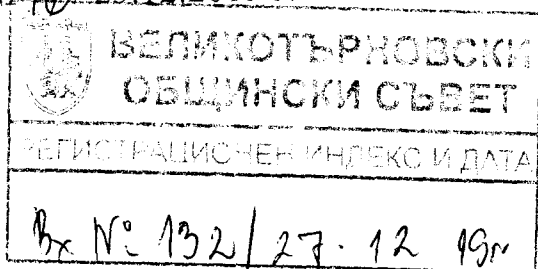 ВЕЛИКОТЪРНОВСКИ
ОБЩИНСКИ СЪВЕТ
РЕГИСТРАЦИОНЕН ИНДЕКС И ДАТА
Вх № 132 / 27.12 19г